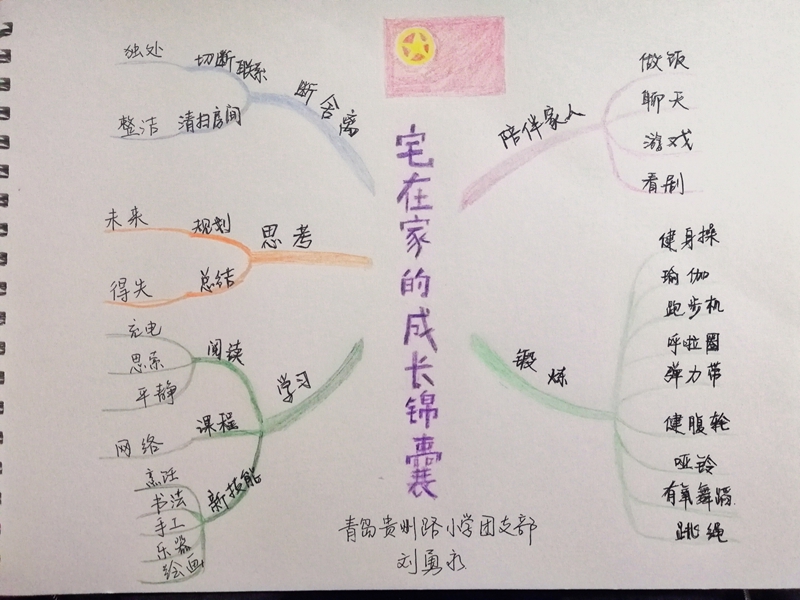 宅在家的成长锦囊
断舍离
切断联系
独处
清扫房间
整洁
思考
规划
未来
总结
得失
学习
阅读
充电
思索
平静
课程
网络
新技能
烹饪
书法
手工
乐器
绘画
陪伴家人
做饭
聊天
游戏
看剧
锻炼
健身操
瑜伽
跑步机
呼啦圈
弹力带
健腹轮
哑铃
有氧舞蹈
跳绳
青岛贵州路小学团支部
刘勇永